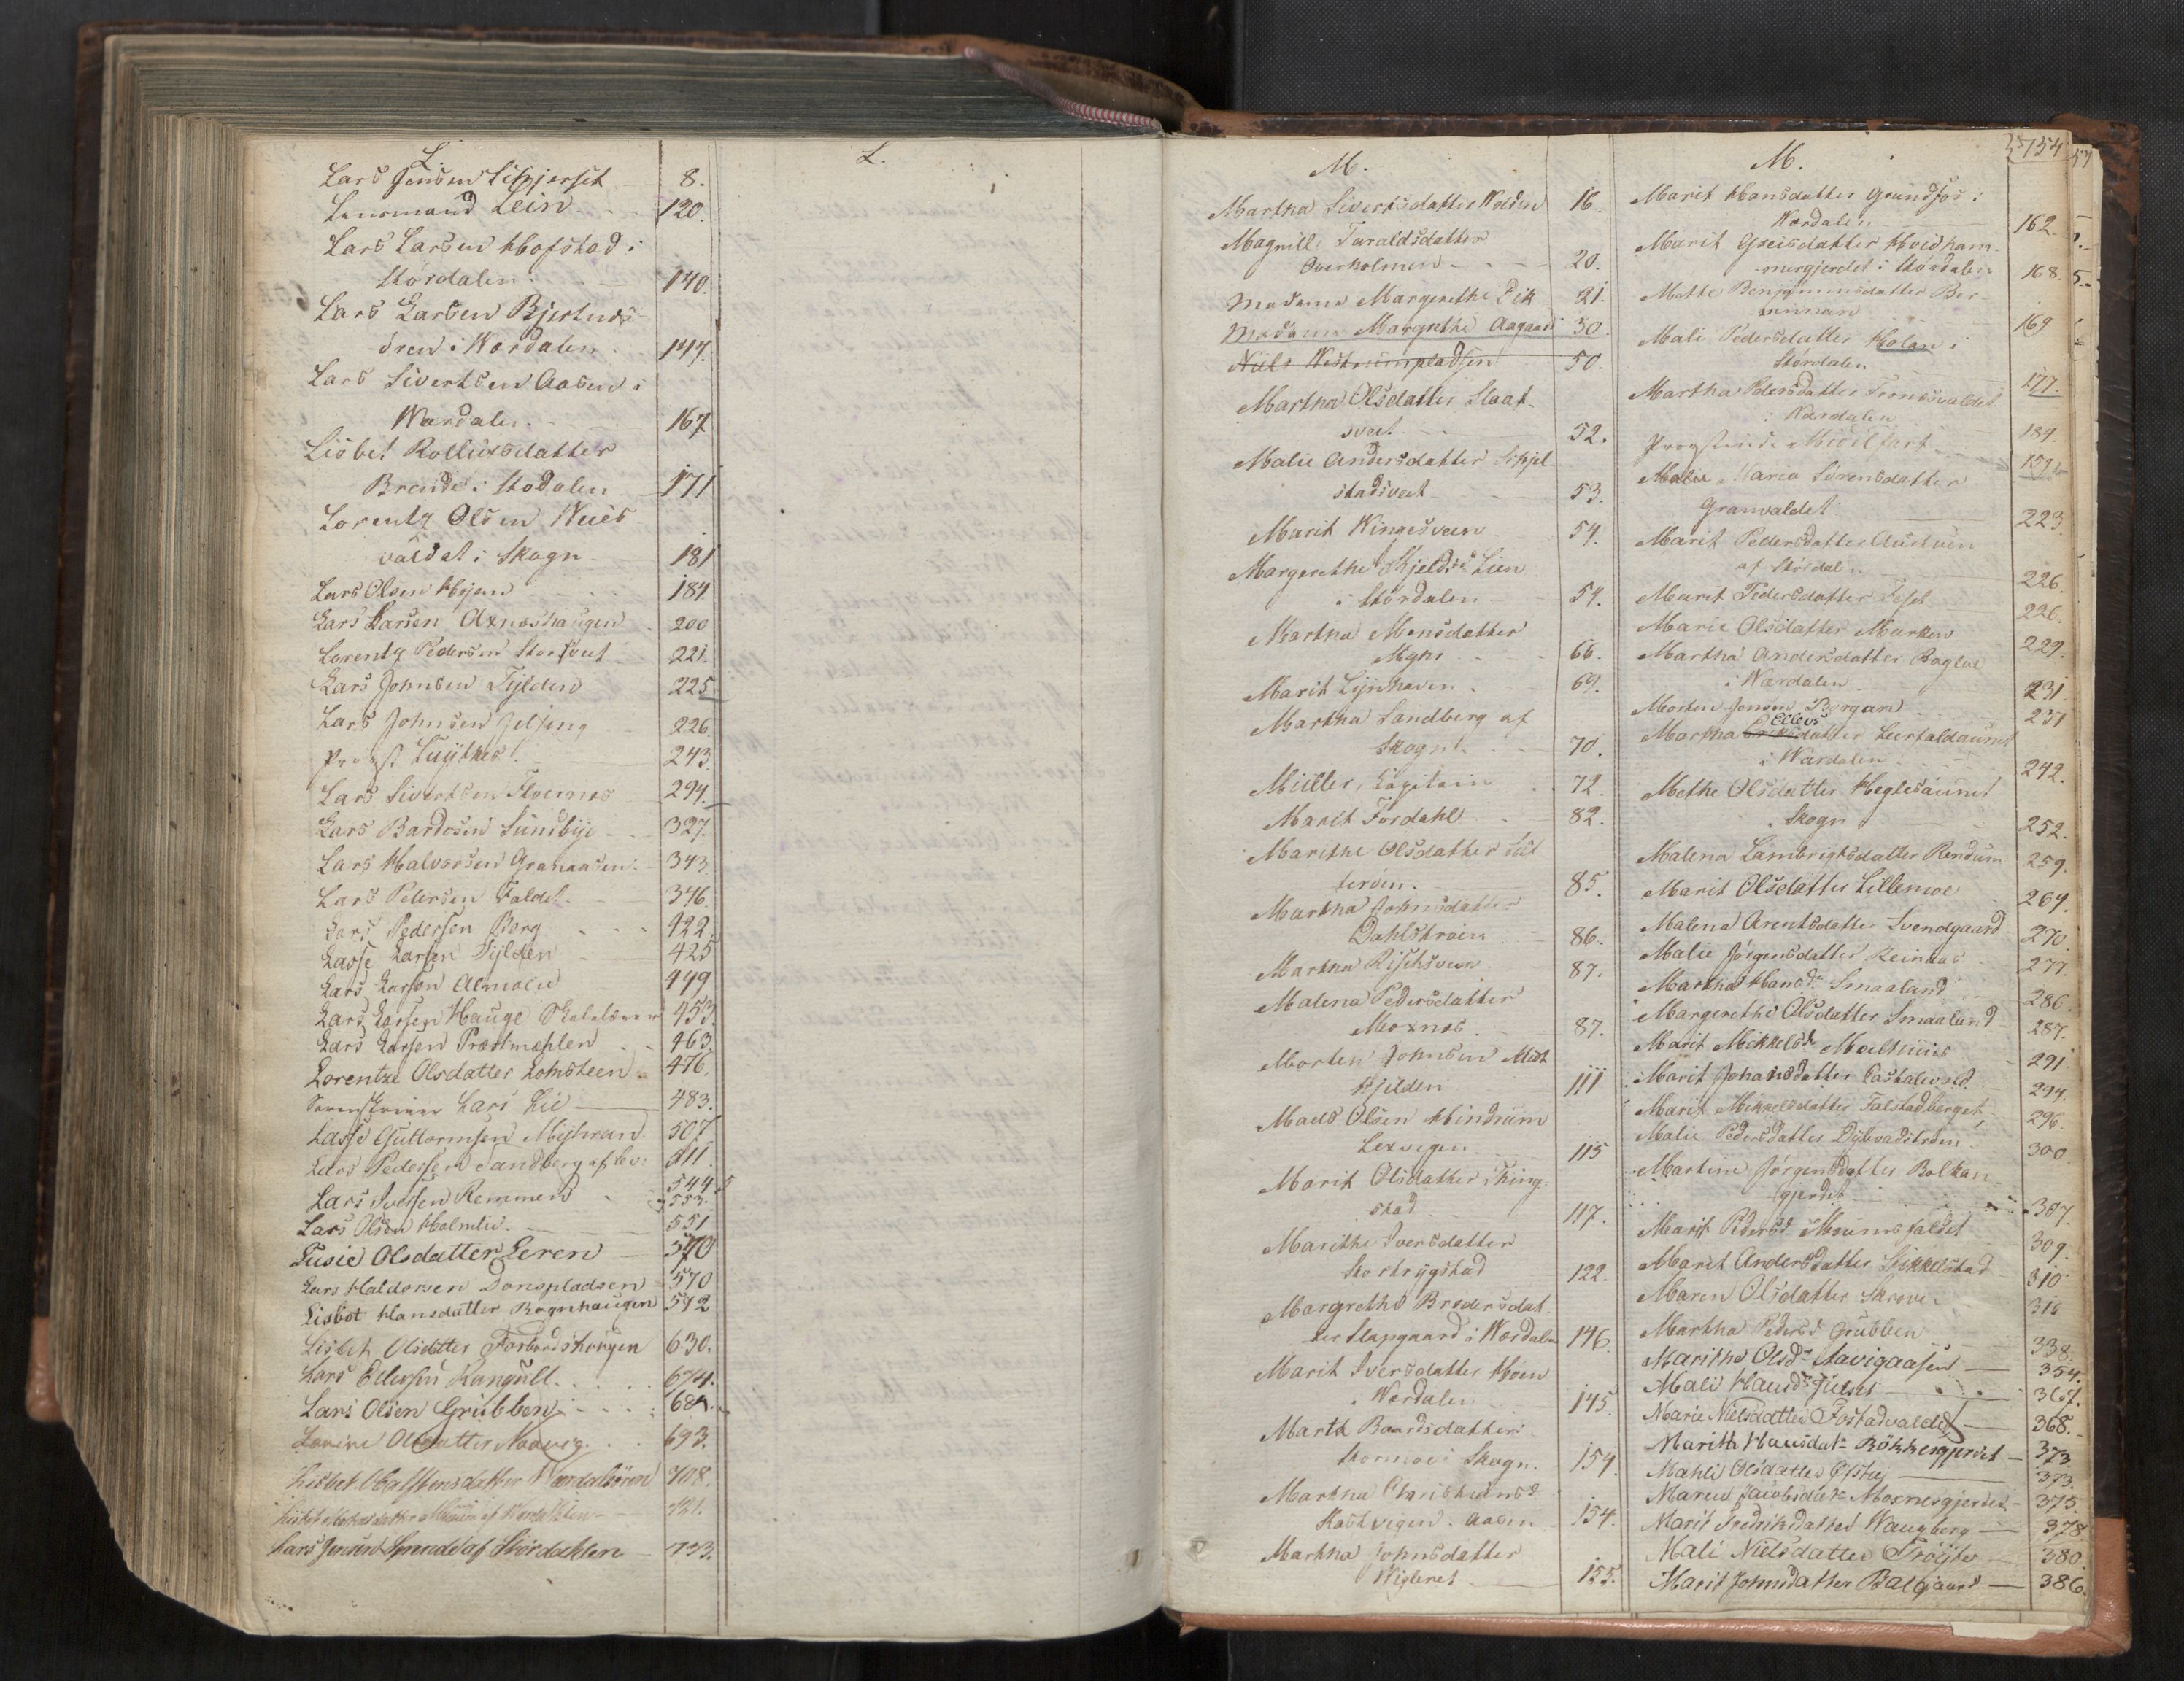 L.
Lars Jensen 8.
Lensmand Lein 120.
Lars Larsen Hofstad i
Stördalen 140.
Lars Larsen Bjertnæs-
ören i Wærdalen 147.
Lars Sivertsen Aasen i
Wærdalen 167
Lisbet Rollufsdatter
Brende i Stodalen 171
Lorentz Olsen Wüis
valdet i Skogn 181
Lars Olsen Hojem 184.
Lars Larsen Axnæshaugen 200
Lorentz Pedersen Storsvet 221.
Lars Johnsen Tylden 225
Lars Johnsen Jelseng 226
Provst Luytkes 243.
Lars Sivertsen Floernes 294.
Lars Bardosen Sundbye 327.
Lars Halvorsen Granaasen 343
Lars Pedersen Faldet 346.
Lars Pedersen Berg 422.
Lasse Larsen Tylden 425
Lars Larsen Almolie 449
Lars Larsen Hauge Skolelærer 453.
Lars Larsen Præstmæhlen 463
Lorentze Olsdatter Lomsteen 476.
Sorenskriver Lars Lie 483.
Lasse Guttormsen Myhran 507
Lars Pedersen Sandberg af Lev: 511
Lars Iversen Remmen 544
553.
Lars Olsen Holmlie 551
Lusie Olsdatter Leren 570
Lars Haldorsen Donspladsen 570
Lisbet Hansdatter Rognhaugen 592
Lisbet Olsdatter Forbordskorgen 630.
Lars Ellevsen Ranguld 674.
Lars Olsen Grubben 684.
Lovise Olsdatter Naavig 693.
Lisbet Halstensdatter Wærdalsören 708.
721.
Lars Jensen Sprende af Stördahlen 733.
L.
M.
Martha Sivertsdatter Wolden 16.
Magnille Taraldsdatter
Overholmen 20.
Madame Margerethe Pik 21.
Madame Margrethe Aagaard 30.
Niels Westrumpladsen 50.
Martha Olsdatter Slaat-
svet 52.
Malie Andersdatter Skjel-
stadsvet 53.
Marit Wingesveen 54.
Margerethe Kjelds.d. Lien
i Stördalen 54.
Martha Monsdatter
Myhr 66.
Marit Lynhaven 69.
Martha Sandberg af
Skogn 70.
Müller, Capitain 72.
Marit Fordahl 82.
Marithe Olsdatter Slüt-
teröen. 85.
Martha Johnsdatter
Dahlstroien 86.
Martha Risthsveen 87.
Malena Pedersdatter
Moxnes 87.
Morten Johnsen Midt
Kjelden 111
Mads Olsen Hindrum
Lexvigen 115
Marit Olsdatter Thing-
stad 117.
Marithe Iversdatter
Skortrygstad 122.
Margrethe Brodersdat-
ter Slapgaard i Wærdalen 146.
Marit Iversdatter Hoen
i Werdalen 145.
Marth Baardsdatter
Kormoe i Skogn. 154.
Martha Christians.d.
Hastvigen Aasen 154.
Martha Johnsdatter
Wigleret 155.
154
M.
Marit Hansdatter Grundfos i
Wærdalen 162.
Marit Greisdatter Hvidham-
mergjerdet i Stördalen 168.
Mette Benjaminsdatter Ber-
tinnan 169
Mali Pedersdatter Holan i
Stördalen 177.
Martha Pedersdatter Fronesvaldet
i Wærdalen 184.
Provstinde Middelfart 159
Malie Maria Sörensdatter
Granvaldet 223.
Marit Pedersdatter Austveen
af Stördalen 226.
Marit Pedersdatter Feset 226.
Marie Olsdatter Marken 229.
Martha Andersdatter Baglae
i Wærdalen 231.
Morten Jensen Borgan 231
Ellevs
Martha Eriksdatter Leirfaldaunet
i Wærdalen 242.
Methe Olsdatter Heglesaunet
Skogn 252.
Malena Lambrigtsdatter Rendum 259.
Marit Olsdatter Lillemoe 269.
Malena Arentsdatter Svendgaard 270.
Malie Jørgensdatter Reinaas 277.
Martha Hansd.r Smaaland 286.
Margerethe Olsdatter Smaaland 287.
Marit Mikkelsd. Maeltuüis 291
Marit Johansdatter Castalevold 294.
Marit Mikkelsdatter Falstadberget 296.
Malie Pedersdatter Dybvadströen 300
Martine Jørgensdatter Balkan-
gjerdet 307.
Marit Pedersd. Mounsfaldet 309.
Marit Andersdatter Sikkelstad 310
Maren Olsdatter Skreve 316
Martha Pedersd. Grubben 338.
Maritha Olsd.r Aavigaasen 354.
Mali Hansd.r Julset 367.
Marie Nielsdatter Fostadvaldet 368.
Marith Hansdatr Bökkergjerdet 373.
Mahli Olsdatter Ofsthus 373.
Maren Jacobsdatr Moxnesgjerdet 375.
Marit Fredriksdatter Waugberg 378
Mali Nielsdatter Tröyte 380.
Marit Johnsdatter Balgaard 386.